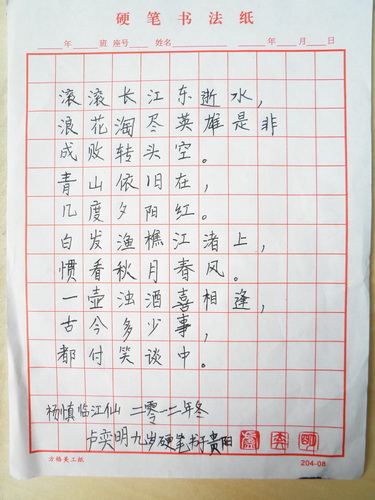 硬笔书法纸
年 班 座号 姓名 年 月 日
滚滚长江东逝水,
浪花淘尽英雄是非
成败转头空。
青山依旧在,
几度夕阳红。
白发渔樵江渚上,
惯看秋月春风。
一壶浊酒喜相逢,
古今多少事,
都付笑谈中。
杨慎临江仙 二零一二年冬
卢奕明九岁硬笔书于贵阳
方格美工纸 204-08